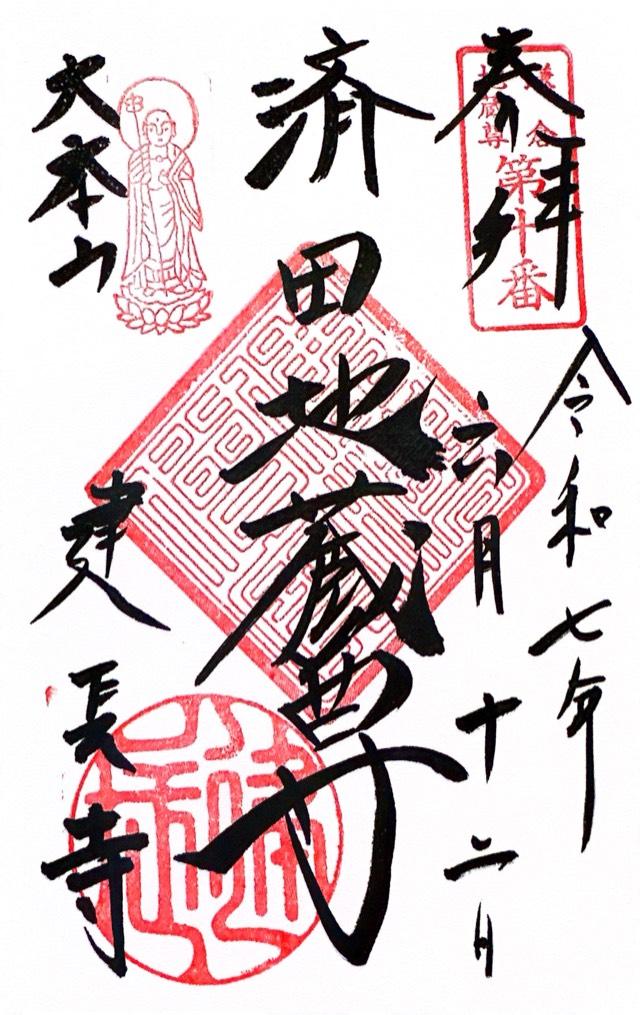 奉拝
鎌倉
地蔵尊
第十番
令和七年
六月十二日
済田地蔵尊
大本山
建長寺